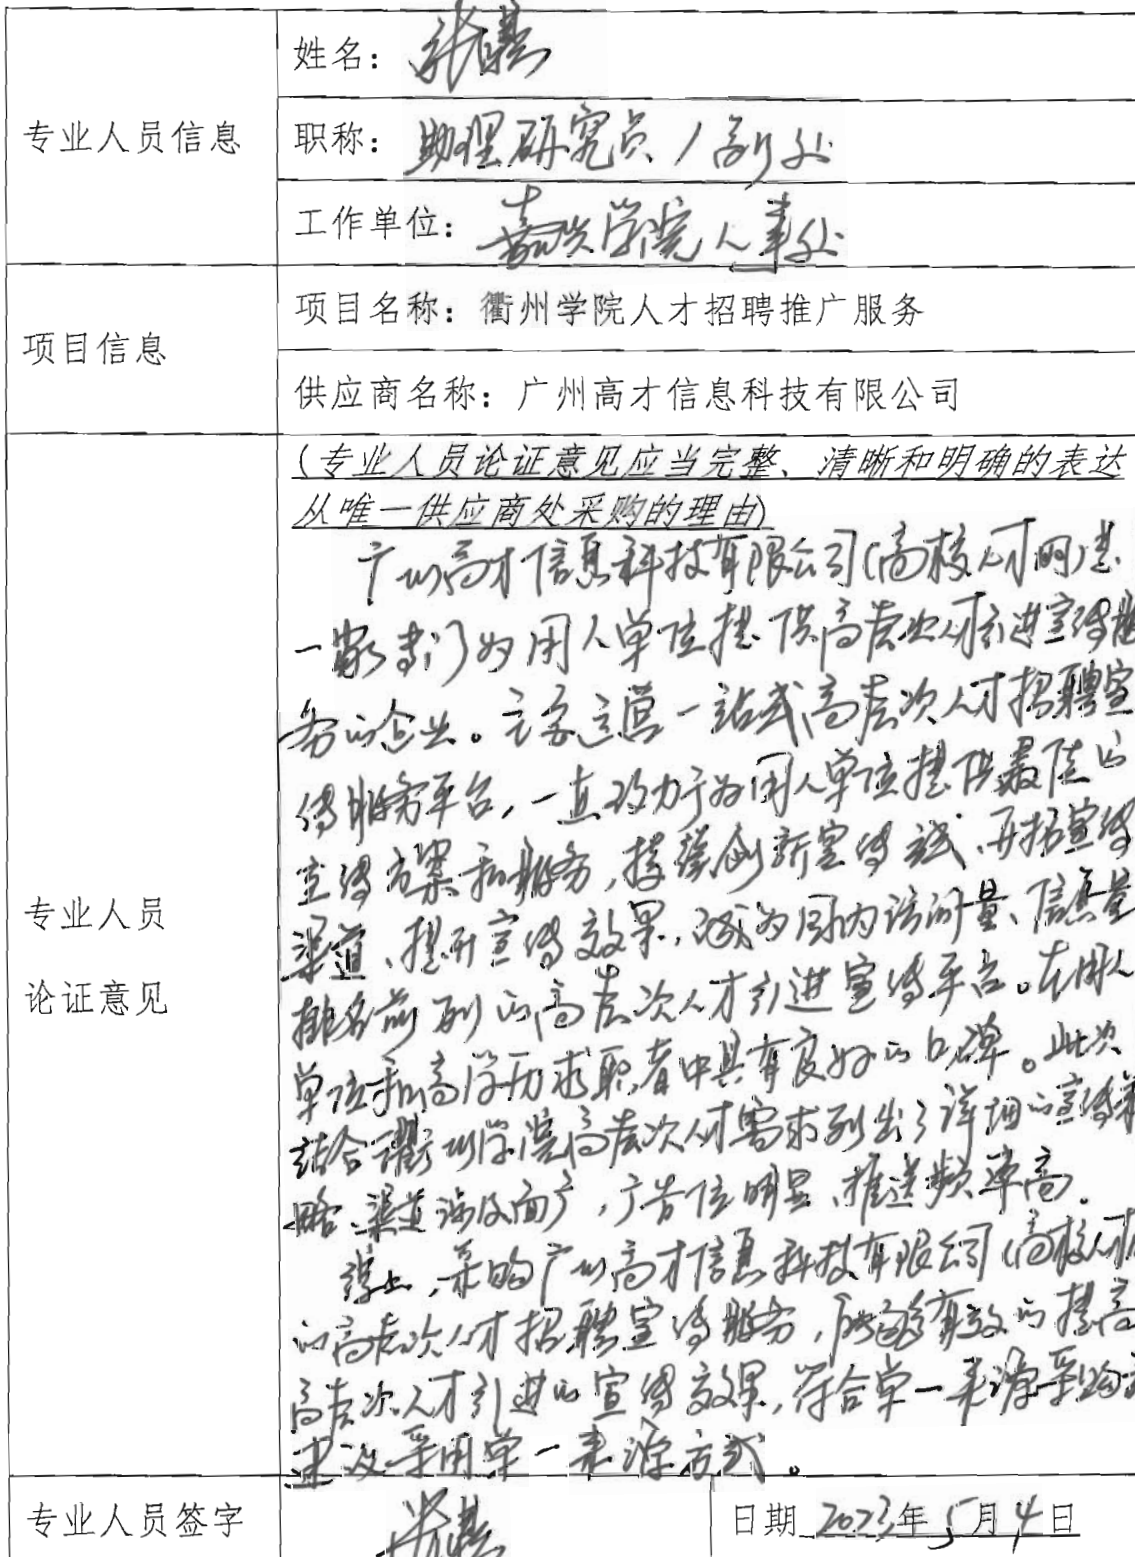 专业人员信息
姓名：张
职称：助理研究员/副处
工作单位：嘉兴学院人事处
项目信息
项目名称：衢州学院人才招聘推广服务
供应商名称：广州高才信息科技有限公司
专业人员
论证意见
（专业人员论证意见应当完整、清晰和明确的表达
从唯一供应商处采购的理由）
广州高才信息科技有限公司（高校人才网）是
一家专门为用人单位提供高层次人才引进宣传服
务的企业。主要运营一站式高层次人才招聘宣
传服务平台，一直致力于为用人单位提供最佳的
宣传方案和服务，持续创新宣传方式、开拓宣传
渠道、提升宣传效果，成为国内访问量、信息量
排名前列的高层次人才引进宣传平台。在用人
单位和高学历求职者中具有良好的口碑。此次
结合衢州学院高层次人才需求列出了详细的宣传策
略、渠道涉及面广，广告位明显、推送频率高。
综上，采购广州高才信息科技有限公司（高校人才
的高层次人才招聘宣传服务，能够有效的提高
高层次人才引进的宣传效果，符合单一来源采购
建议采用单一来源方式。
专业人员签字 张
日期 2023年5月4日